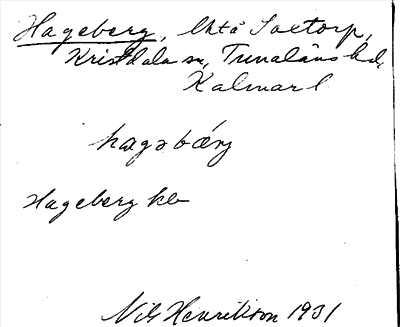 Hageberg, Uktå Saxtorp,
Kristdala sn, Tunaläns hd,
Kalmar l
hagəbærj
Hageberg kb
Nils Henrikson 1931